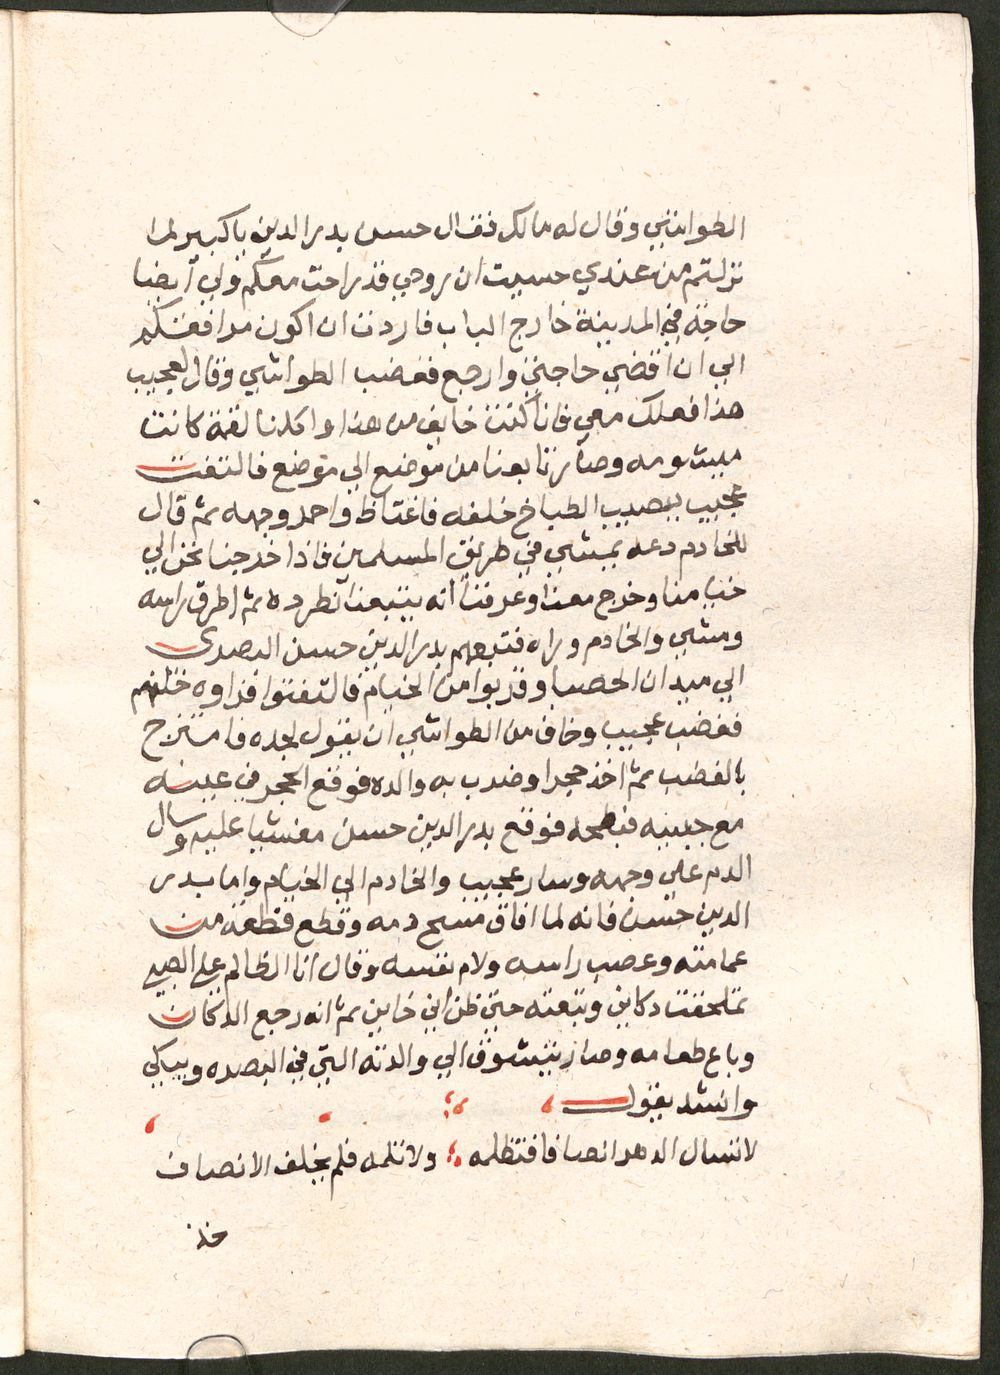 الطواشي وقال له مالك فقال حسن بدر الدين يا كبير لما
نزلتم من عندي حسيت ان روحي قد راحت معكم ولي ايضا
حاجة في المدينة خارج الباب فاردت ان اكون مرافقكم
الي ان اقضي حاجتي وارجع فغضب الطواشي وقال لعجيب
هذا فعلك معي فانا كنت خايف من هذا واكلنا لقمة كانت
ميشومه وصار تابعنا من موضع الي موضع فالتفت
عجيب يبصر الطباخ خلفه فاغتاظ واحمر وجهه ثم قال
للخادم دعه يمشي في طريق المسلمين فاذا خرجنا نحن الي
خيامنا وخرج معنا وعرفنا انه يتبعنا نطرده ثم اطرق راسه
ومشي والخادم وراه فتبعهم بدر الدين حسن البصري
الي ميدان الحصبا وقربوا من الخيام فالتفتوا فراوه خلفهم
فغضب عجيب وخاف من الطواشي ان يقول لجده فامتزج
بالغضب ثم اخذ حجرا وضرب به والده فوقع الحجر في عينه
مع جبينه فبطحه فوقع بدر الدين حسن مغشيا عليه وسال
الدم علي وجهه وسار عجيب والخادم الي الخيام واما بدر
الدين حسن فانه لما افاق مسح دمه وقطع قطعة من
عمامته وعصب راسه ولام نفسه وقال انا الظالم علي الصبي
غلقت دكاني وتبعته حتي ظن اني خاين ثم انه رجع الدكان
وباع طعامه وصار يتشوق الي والدته التي في البصره ويبكي
وانشد يقول
لا تسال الدهر انصافا فتظلمه ؛ ولا تلمه فلم يخلف الانصاف
خذ